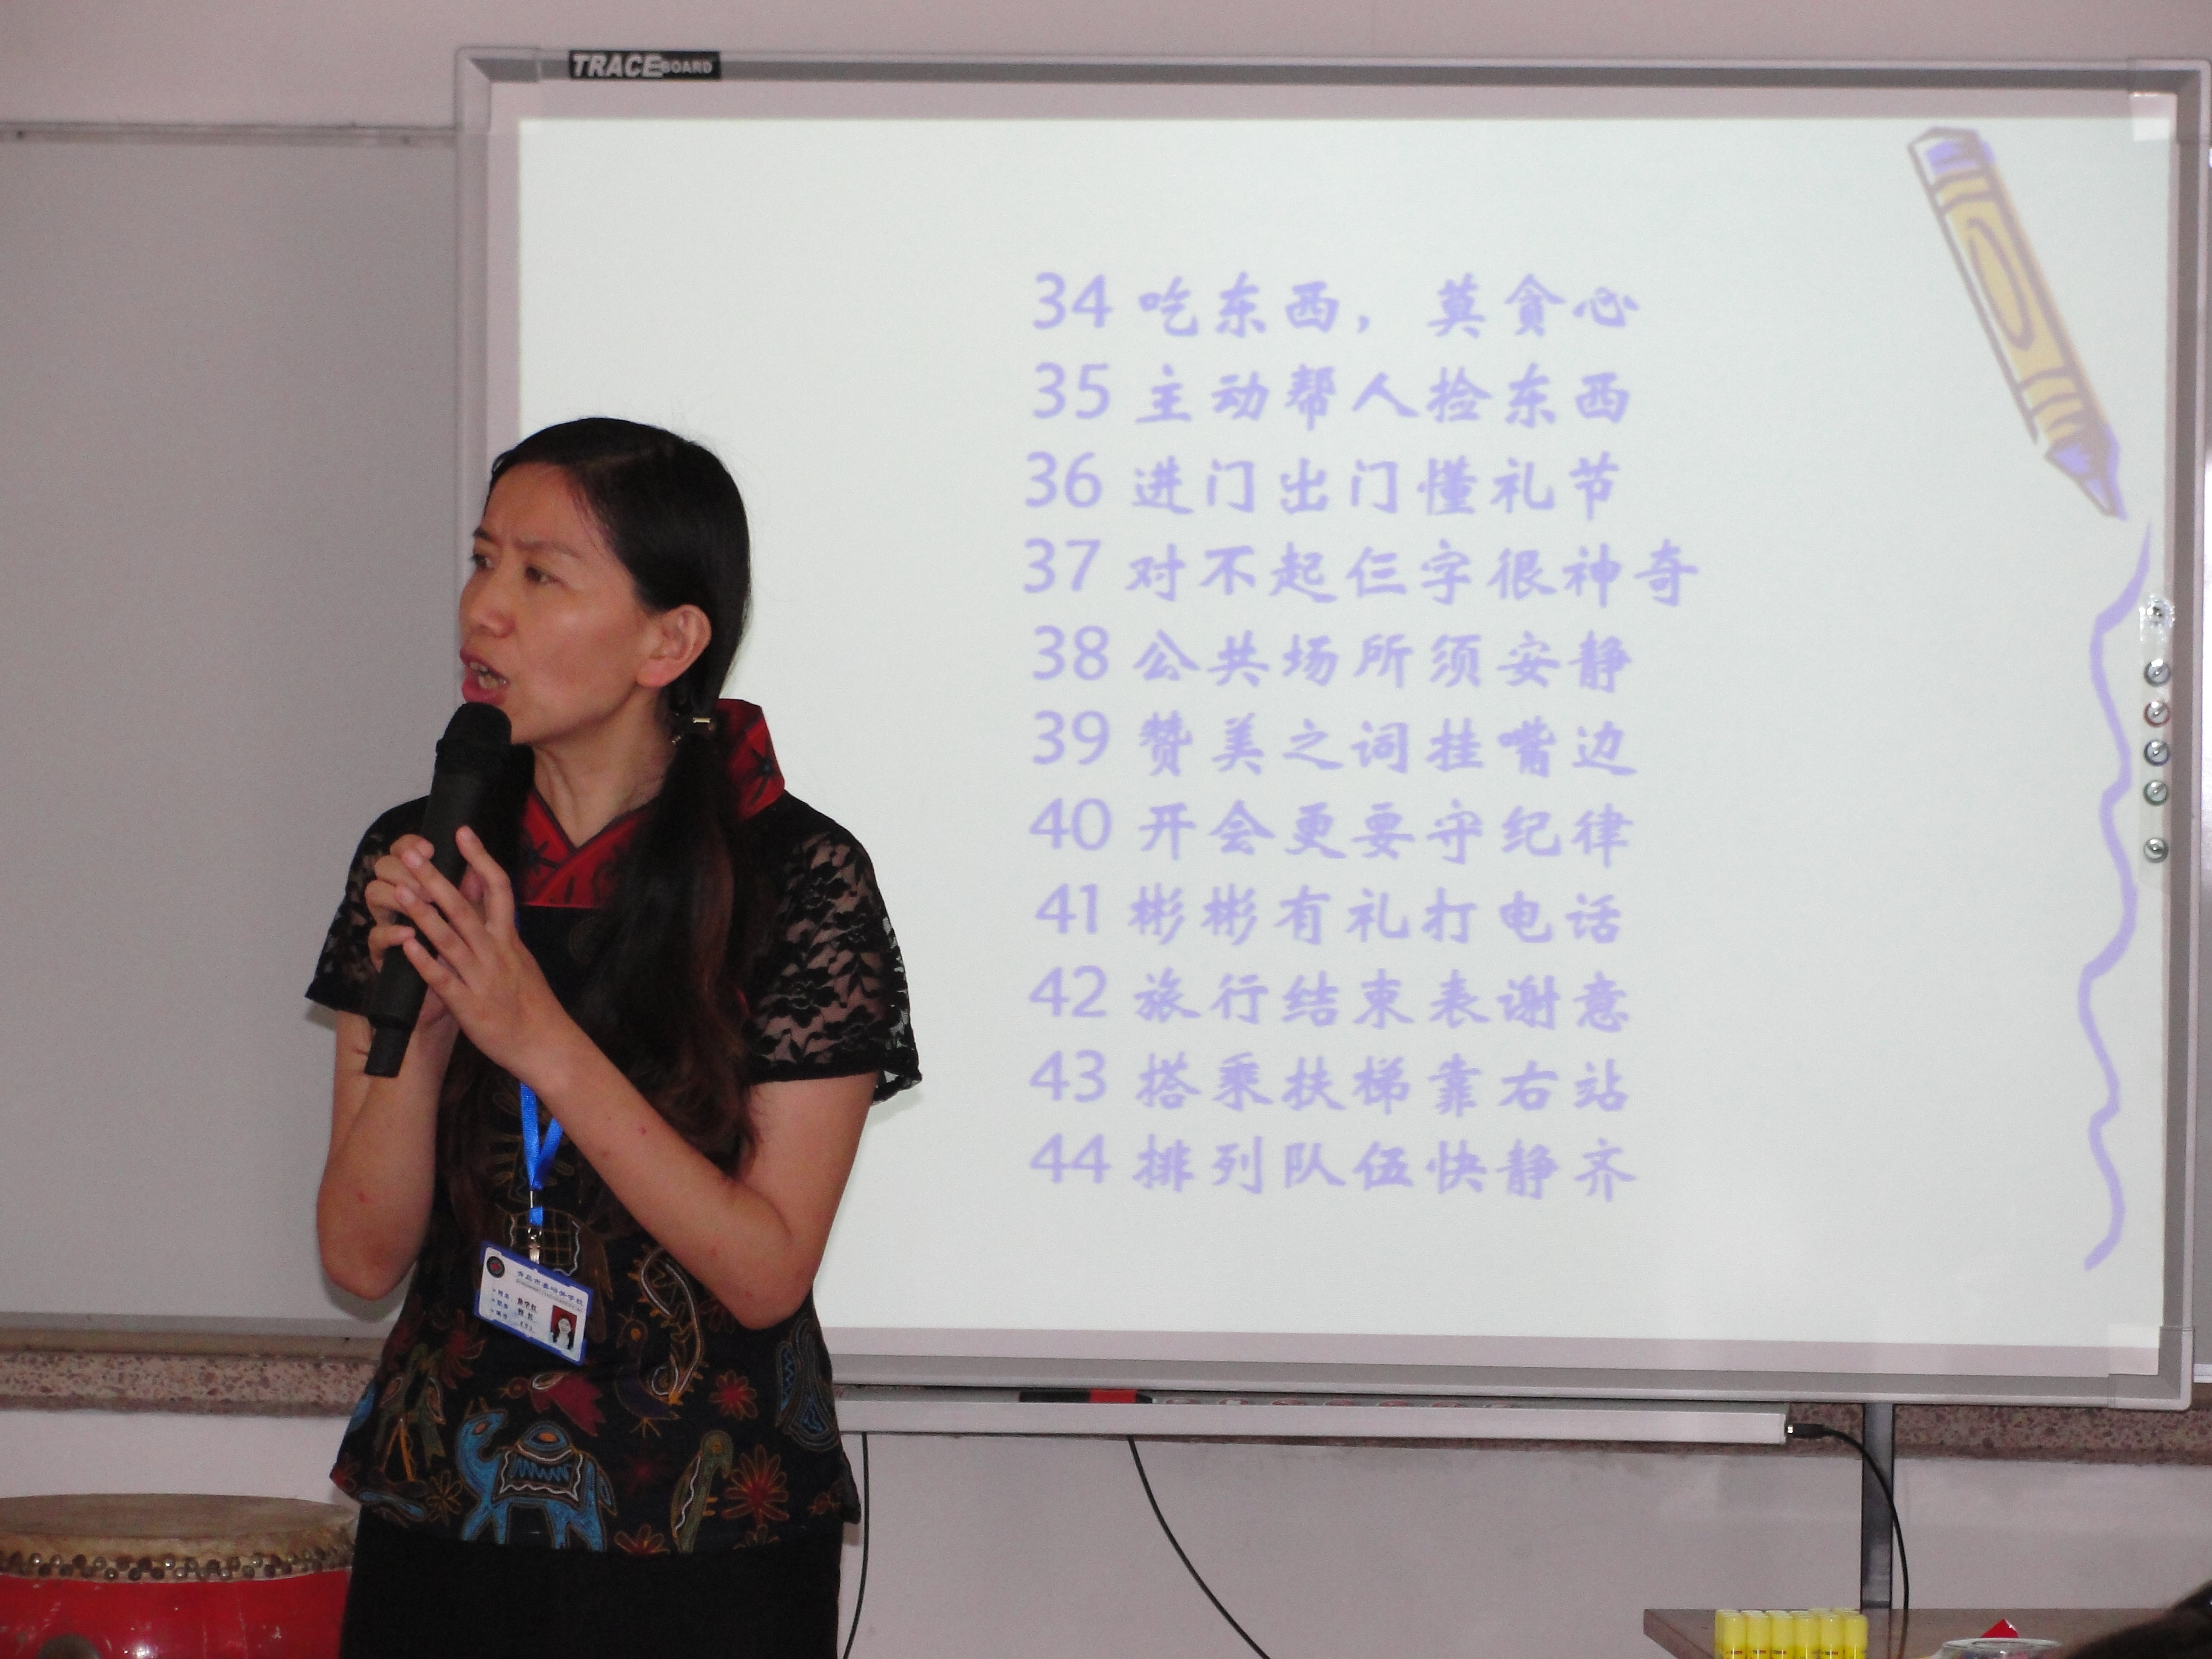 TRACEBOARD
34 吃东西，莫贪心
35 主动帮人捡东西
36 进门出门懂礼节
37 对不起仨字很神奇
38 公共场所须安静
39 赞美之词挂嘴边
40 开会更要守纪律
41 彬彬有礼打电话
42 旅行结束表谢意
43 搭乘扶梯靠右站
44 排列队伍快静齐